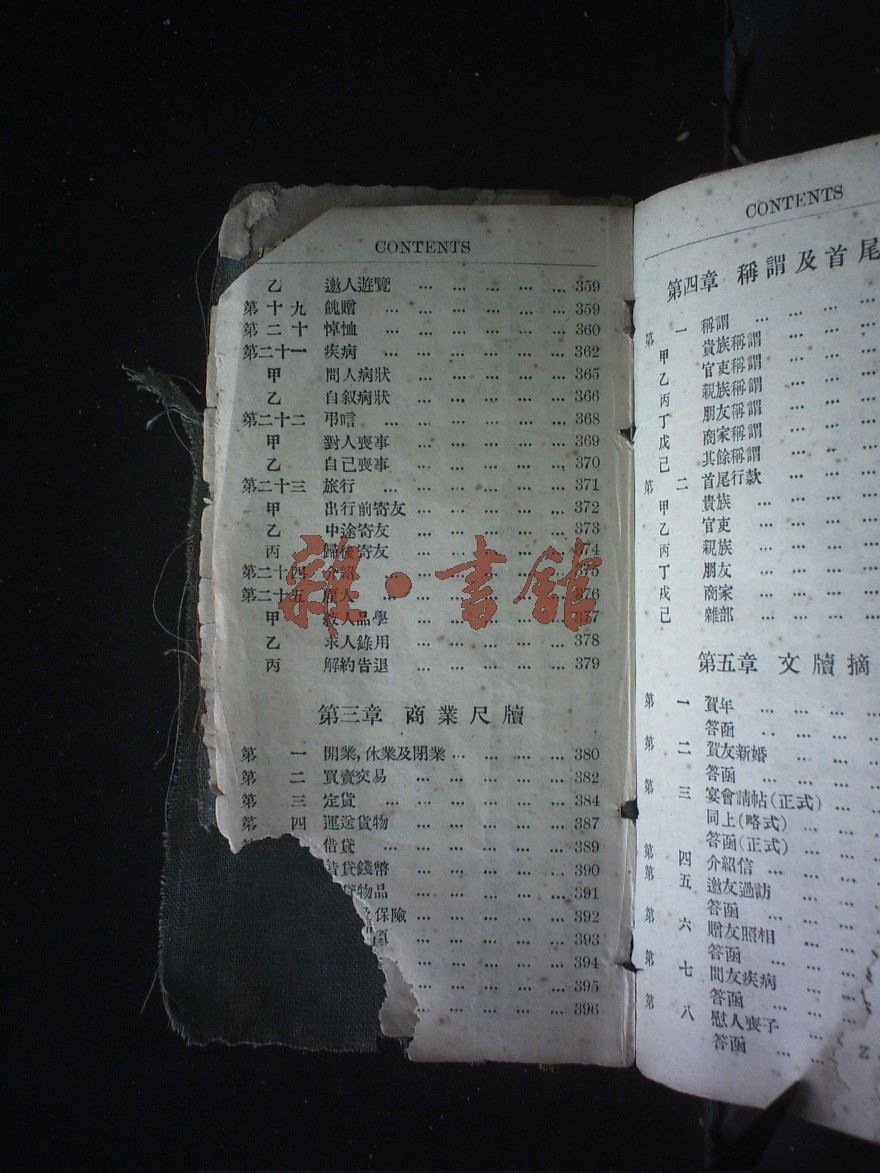 CONTENTS
乙 邀人遊覽 ... ... ... ... ... 359
第十九 餽贈 ... ... ... ... ... ... 359
第二十 悼恤 ... ... ... ... ... ... 360
第二十一 疾病 ... ... ... ... ... ... 362
甲 問人病狀 ... ... ... ... ... 365
乙 自叙病狀 ... ... ... ... ... 366
第二十二 弔唁 ... ... ... ... ... ... 368
甲 對人喪事 ... ... ... ... ... 369
乙 自己喪事 ... ... ... ... ... 370
第二十三 旅行 ... ... ... ... ... ... 371
甲 出行前寄友 ... ... ... ... ... 372
乙 中途寄友 ... ... ... ... ... 373
丙 歸後寄友 ... ... ... ... ... 374
第二十四 介紹 ... ... ... ... ... ... 375
第二十五 ... ... ... ... ... 376
甲 人品學 ... ... ... ... ... 377
乙 求人錄用 ... ... ... ... ... 378
丙 解約告退 ... ... ... ... ... 379
第三章 商業尺牘
第一 開業,休業及閉業 ... ... ... ... 380
第二 買賣交易 ... ... ... ... ... 382
第三 定貨 ... ... ... ... ... ... 384
第四 運送貨物 ... ... ... ... ... 387
借貸 ... ... ... ... ... ... 389
借貸錢幣 ... ... ... ... ... 390
物品 ... ... ... ... ... 391
保險 ... ... ... ... ... 392
... ... ... ... ... 393
... ... ... ... ... 394
... ... ... ... ... 395
... ... ... ... ... 396
雜·書館
CONTENTS
第四章 稱謂及首尾
第一 稱謂 ... ... ...
甲 貴族稱謂 ... ...
乙 官吏稱謂 ... ...
丙 親族稱謂 ... ...
丁 朋友稱謂 ... ...
戊 商家稱謂 ... ...
己 其餘稱謂 ... ...
第二 首尾行款 ... ...
甲 貴族 ... ... ...
乙 官吏 ... ... ...
丙 親族 ... ... ...
丁 朋友 ... ... ...
戊 商家 ... ... ...
己 雜部 ... ... ...
第五章 文牘摘
第一 賀年 ... ... ...
答函 ... ... ...
第二 賀友新婚 ... ...
答函 ... ... ...
第三 宴會請帖(正式) ...
同上(略式) ... ...
答函(正式) ... ...
第四 介紹信 ... ... ...
第五 邀友過訪 ... ...
答函 ... ... ...
第六 贈友照相 ... ...
答函 ... ... ...
第七 問友疾病 ... ...
答函 ... ... ...
第八 慰人喪子 ... ...
答函 ... ...